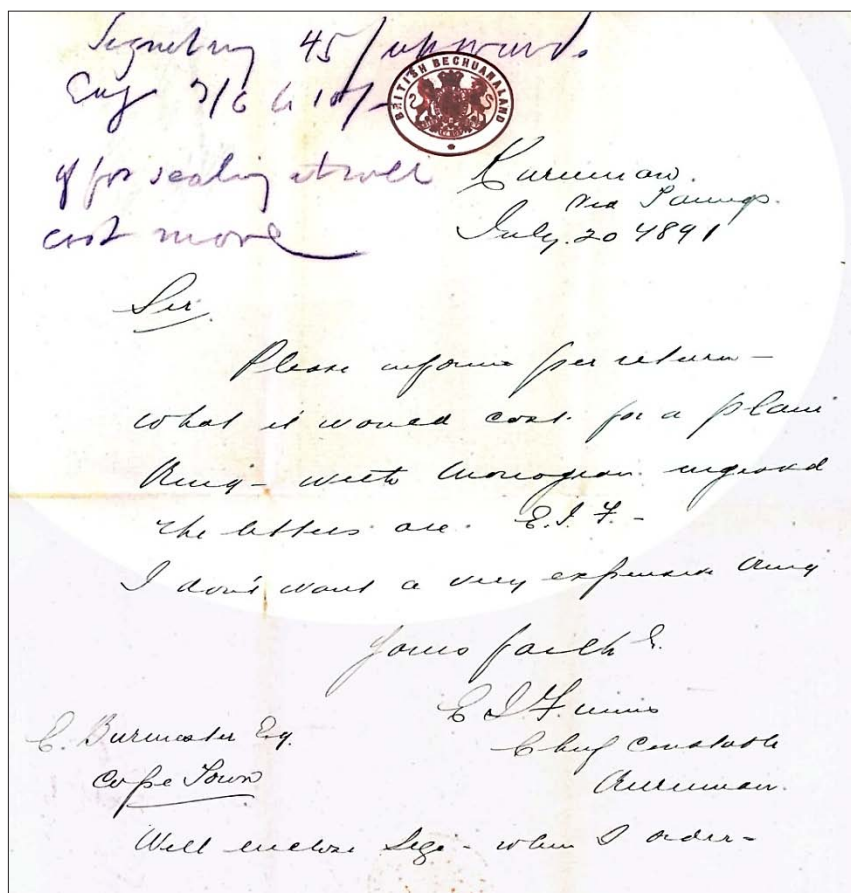 Signet ring 45/ upwards.
Eng 7/6 to 10/-
if for sealing it will
cost more
BRITISH BECHUANALAND
Kuruman.
via Taungs.
July. 20 1891
Sir.
Please inform per return -
what it would cost. for a plain
Ring - with Monogram. engraved
The letters are. E.I.F. -
I don't want a very expensive Ring
Yours faith
E I Finnis
Chief Constable
Kuruman.
C. Burmester Esq.
Cape Town
Will enclose size - when I order -